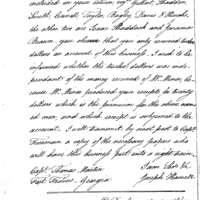 included in your return, say Gilbert, Shaddon,
Smith, Carroll, Taylor, Bagley, Davis & Murphy,
the other two are Isaac Shaddock and
Brown. you observe that you only received twelve
dollars on account of this business. I wish to be
informed whether the twelve dollars was inde-
pendant of the money received of Mr. Minor, be-
cause Mr. Minor produced your receipt to twenty
dollars which is the premium for the above named
ed men, and which receipt is subjoined to the
account. I will transmit by next post to Capt.
Freeman a copy of the necessary papers who
will have this business put into a right train.
I am Sir &c.
Capt. Thomas Martin
Joseph Howell
Fort Fidius, Georgia